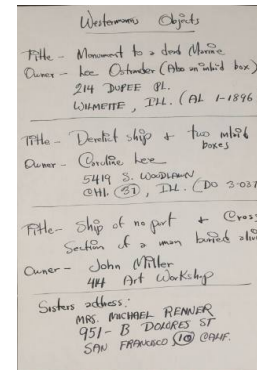 Westermanns Objects
Title - Monument to a dead Marine
Owner - Lee Ostrander (Also an inlaid box)
214 DUPEE PL.
WILMETTE, ILL. (AL 1-1896
Title - Derelict ship + two inlaid
boxes
Owner - Caroline Lee
5419 S. WOODLAWN
CHI. (37), ILL. (DO 3-037
Title - Ship of no port + Cross
Section of a man buried alive
Owner - John Miller
414 Art Workshop
Sisters address:
MRS. MICHAEL RENNER
951-B DOLORES ST
SAN FRANCISCO (10) CALIF.